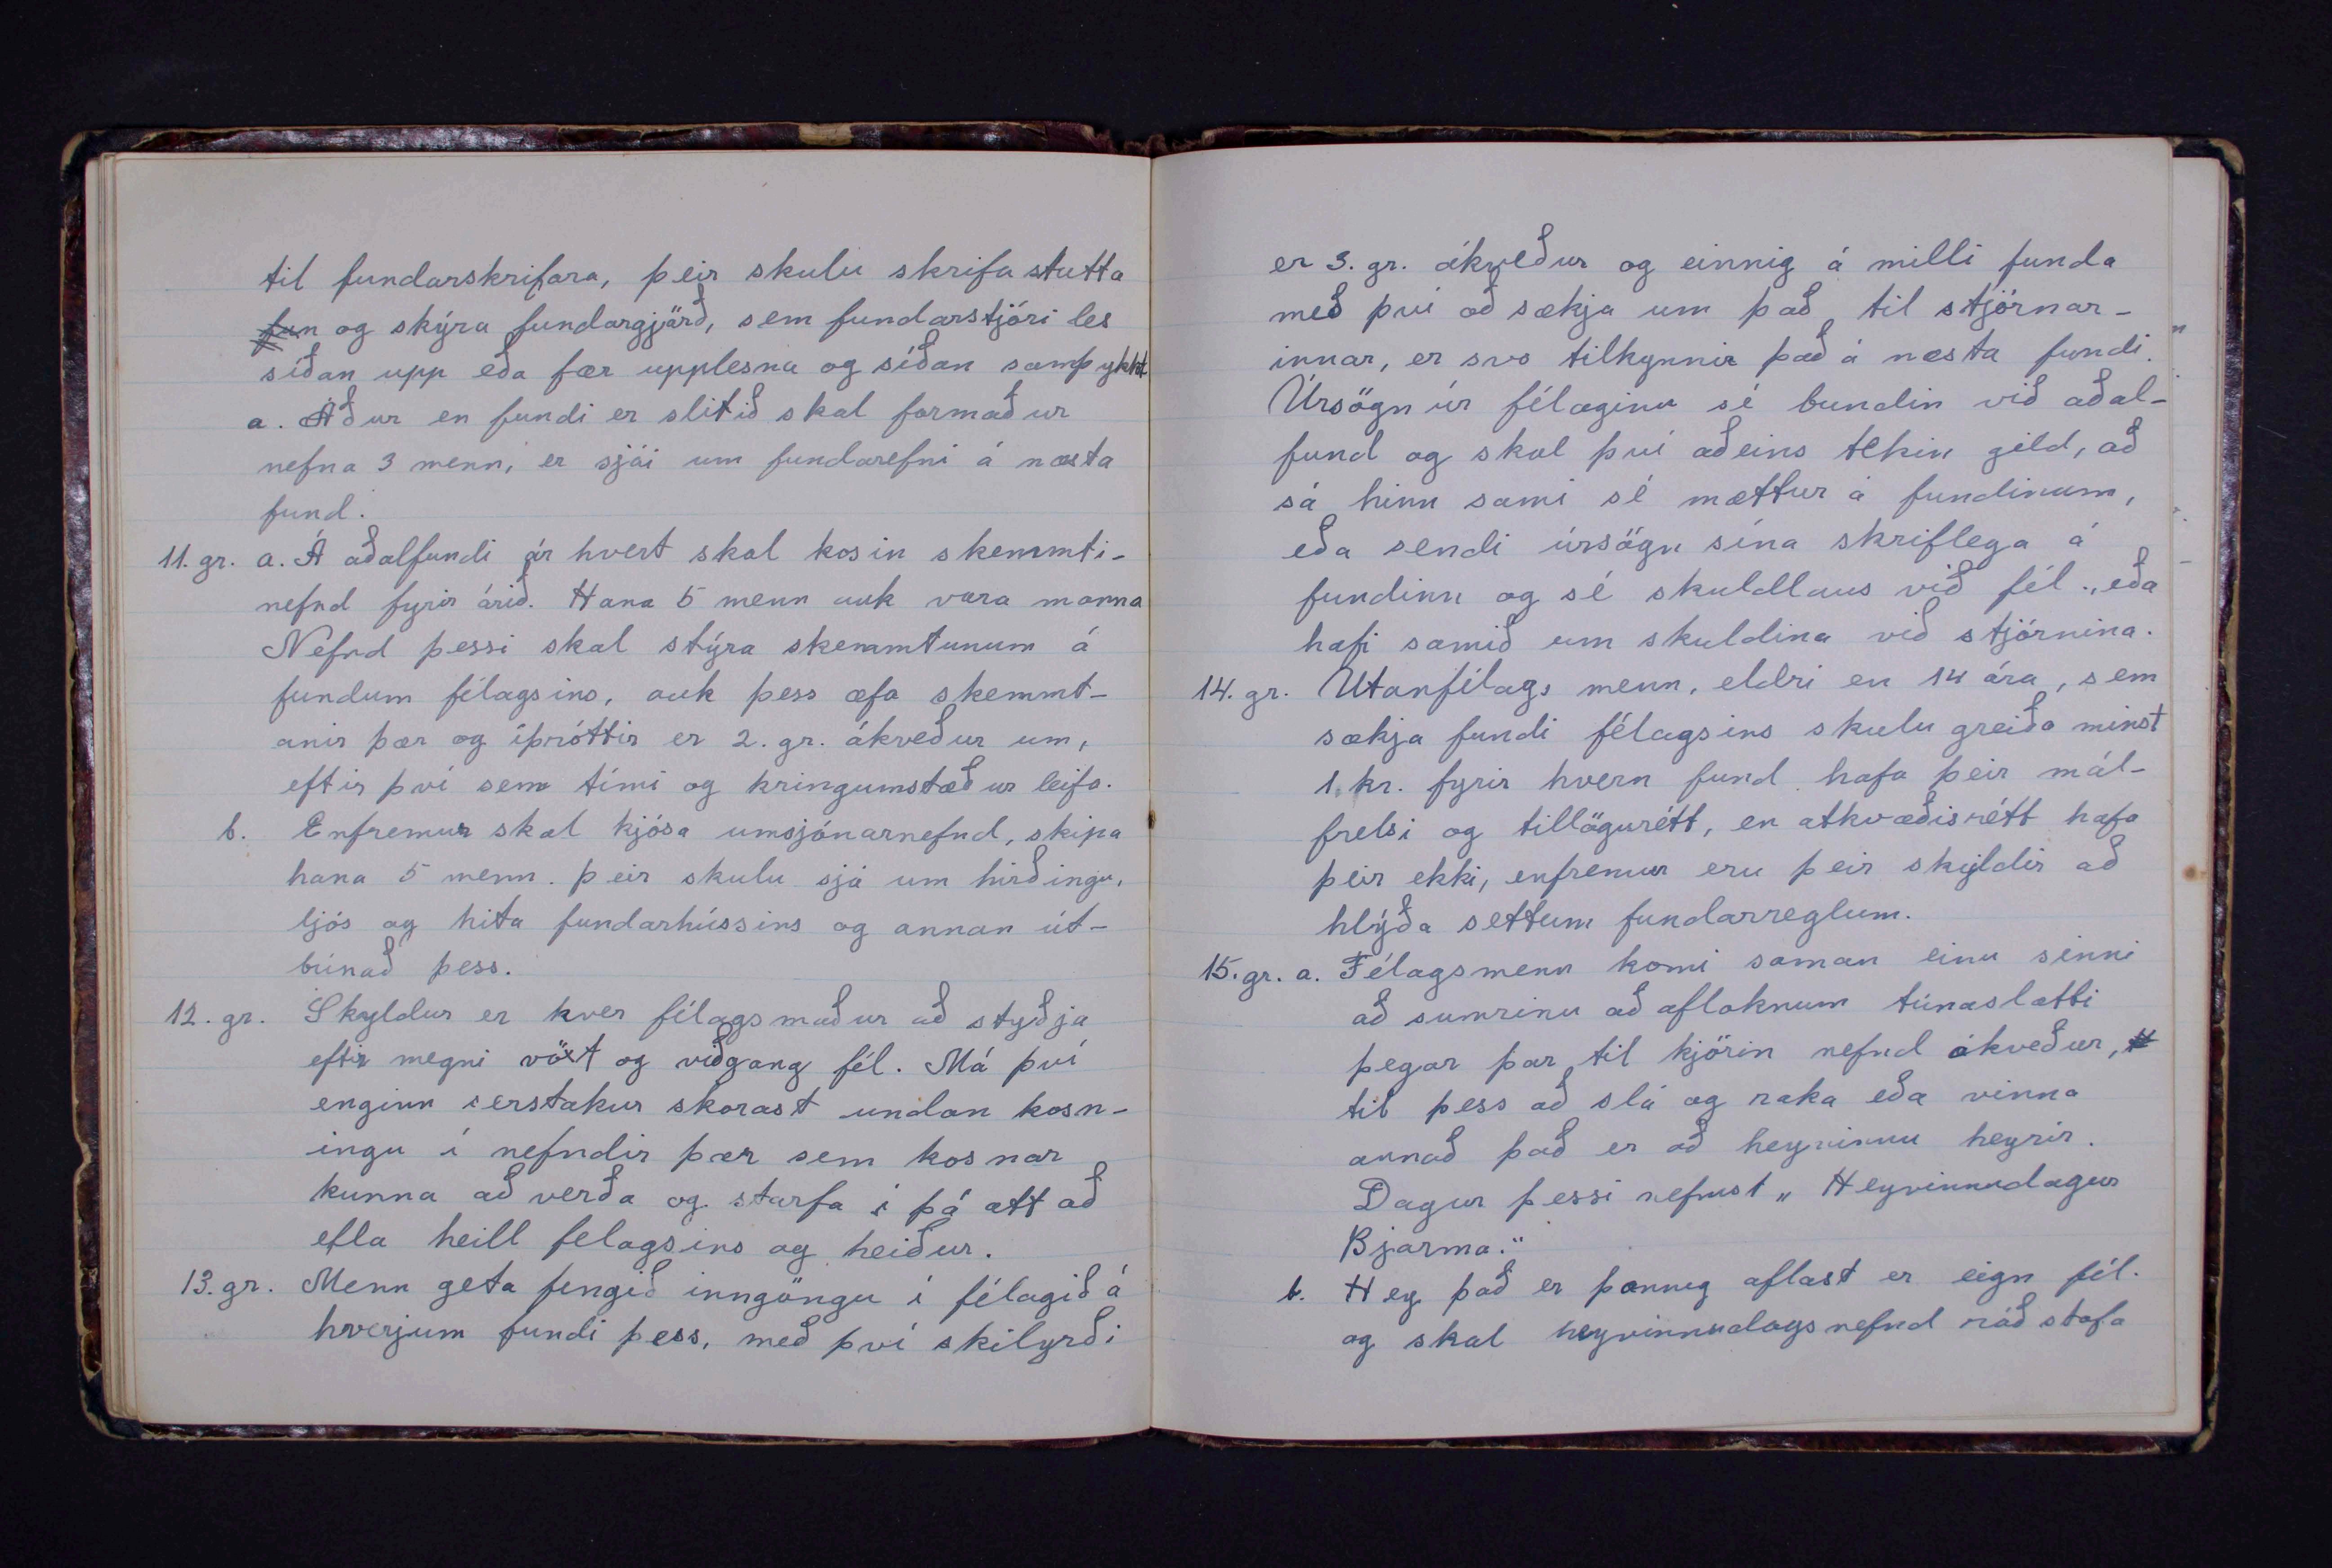 til fundarskrifara, þeir skulu skrifa stutta
fun og skýra fundargjärð, sem fundarstjóri les
síðan upp eða fær upplesna og síðan samþykkt
a. Áður en fundi er slitið skal formaður
nefna 3 menn, er sjái um fundarefni á næsta
fund.
11. gr. a. Á aðalfundi ár hvert skal kosin skemmti-
nefnd fyrir árið. Hana 5 menn auk vara manna
Nefnd þessi skal stýra skemmtunum á
fundum félagsins, auk þess æfa skemmt-
anir þær og íþróttir er 2. gr. ákveður um,
eftir því sem tími og kringumstæður leifa.
b. Enfremur skal kjósa umsjónarnefnd, skipa
hana 5 menn. þeir skulu sjá um hirðingu,
ljós og hita fundarhússins og annan út-
búnað þess.
12. gr. Skyldur er hver félagsmaður að styðja
eftir megni vöxt og viðgang fél. Má því
enginn serstakur skorast undan kosn-
ingu í nefndir þær sem kosnar
kunna að verða og starfa í þá átt að
efla heill felagsins og heiður.
13. gr. Menn geta fengið inngöngu í félagið á
hverjum fundi þess, með því skilyrði
er 3. gr. ákveður og einnig á milli funda
með því að sækja um það til stjórnar-
innar, er svo tilkynnir það á næsta fundi.
Úrsögn úr félaginu sé bundin við aðal-
fund og skal því aðeins tekin gild, að
sá hinn sami sé mættur á fundinum,
eða sendi úrsögn sína skriflega á
fundinn og sé skuldlaus við fél., eða
hafi samið um skuldina við stjórnina.
14. gr. Utanfélags menn, eldri en 14 ára, sem
sækja fundi félagsins skulu greiða minst
1. kr. fyrir hvern fund hafa þeir mál-
frelsi og tillögurétt, en atkvæðisrétt hafa
þeir ekki, enfremur eru þeir skyldir að
hlýða settum fundarreglum.
15. gr. a. Félagsmenn komi saman einu sinni
að sumrinu að afloknum túnaslætti
þegar þar til kjörin nefnd ákveður,
til þess að slá og raka eða vinna
annað það er að heyvinnu heyrir.
Dagur þessi nefnist „Heyvinnudagur
Bjarma."
b. Hey það er þannig aflast er eign fél.
og skal heyvinnudagsnefnd ráðstafa